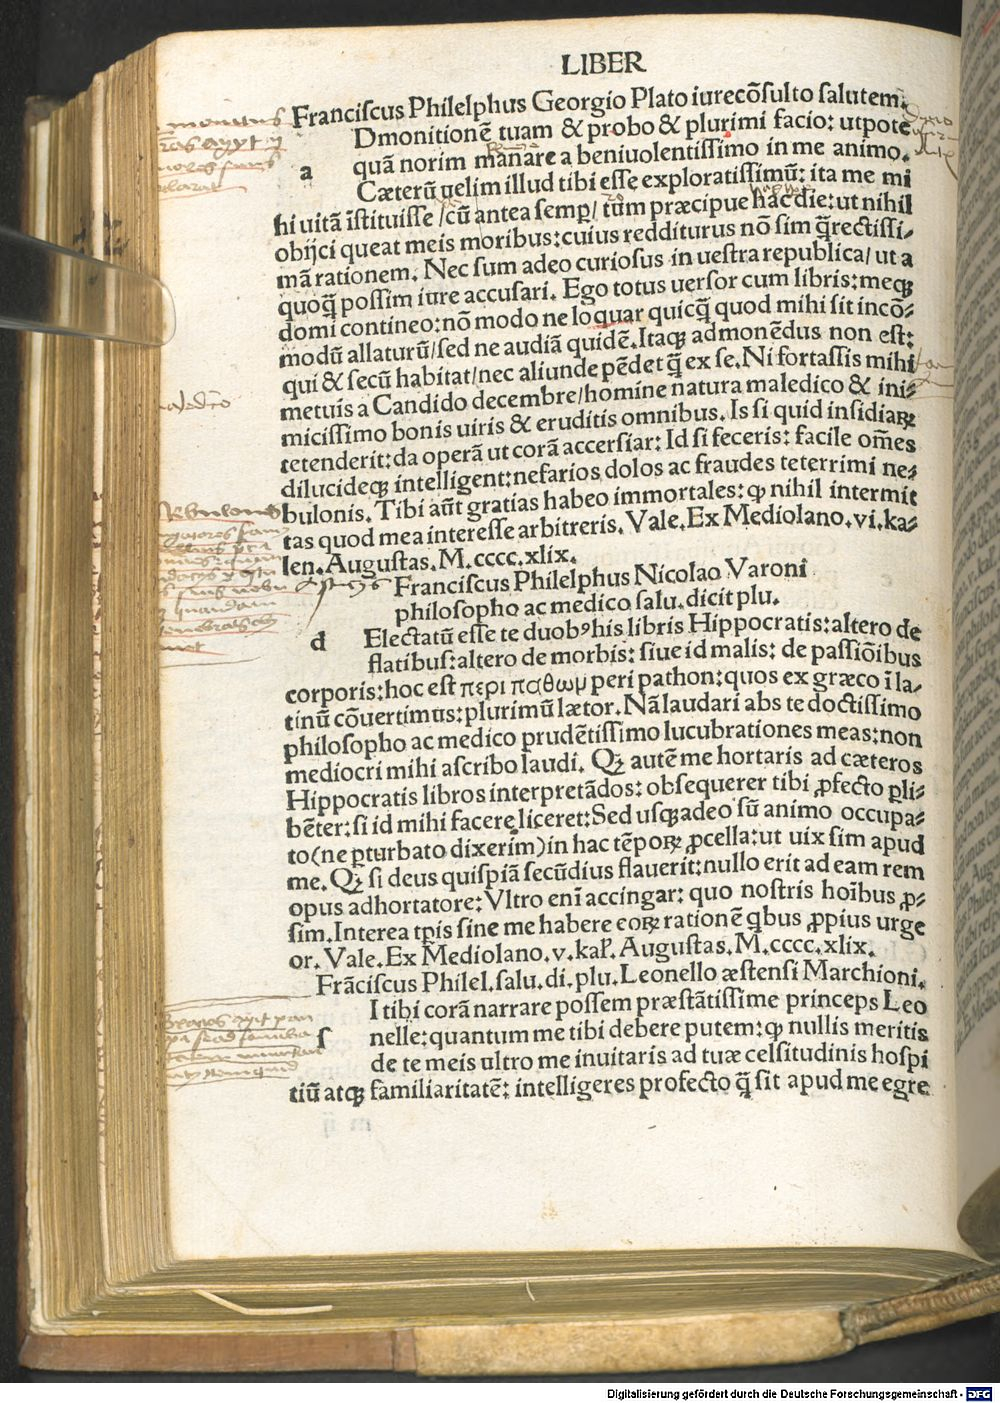 LIBER
Franciſcus Philelphus Georgio Plato iurecõſulto ſalutem.
Dmonitionẽ tuam & probo & plurimi facio: utpote
a quã norim manare a beniuolentiſſimo in me animo.
Cæterũ uelim illud tibi eſſe exploratiſſimũ: ita me mi
hi uitã ĩſtituiſſe/cũ antea ſemꝑ/tum præcipue hac die: ut nihil
obijci queat meis moribus: cuius redditurus nõ ſim q̃rectiſſi⸗
mã rationem. Nec ſum adeo curioſus in ueſtra republica/ut a
quoq̃ poſſim iure accuſari. Ego totus uerſor cum libris: meqꝫ
domi contineo: nõ modo ne loquar quicq̃ quod mihi ſit incõ⸗
modũ allaturũ/ſed ne audiã quidẽ. Itaqꝫ admonẽdus non eſt:
qui & ſecũ habitat/nec aliunde pẽdet q̃ ex ſe. Ni fortaſſis mihi
metuis a Candido decembre/homine natura maledico & ini⸗
miciſſimo bonis uiris & eruditis omnibus. Is ſi quid inſidiaꝝ
tetenderit: da operã ut corã accerſiar: Id ſi feceris: facile om̃es
dilucideqꝫ intelligent: nefarios dolos ac fraudes teterrimi ne⸗
bulonis. Tibi aũt gratias habeo immortales: ꝙ nihil intermit
tas quod mea intereſſe arbitreris. Vale. Ex Mediolano. vi. ka⸗
len. Auguſtas. M. cccc. xlix.
Franciſcus Philelphus Nicolao Varoni
philoſopho ac medico ſalu. dicit plu.
d Electatũ eſſe te duobꝰ his libris Hippocratis: altero de
flatibus: altero de morbis: ſiue id malis: de paſſiõibus
corporis: hoc eſt περι παθωμ peri pathon: quos ex græco ĩ la⸗
tinũ cõuertimus: plurimũ lætor. Nã laudari abs te doctiſſimo
philoſopho ac medico prudẽtiſſimo lucubrationes meas: non
mediocri mihi aſcribo laudi. Qꝫ autẽ me hortaris ad cæteros
Hippocratis libros interpretãdos: obſequerer tibi ꝓfecto ꝑli⸗
bẽter: ſi id mihi facere liceret: Sed uſqꝫadeo ſũ animo occupa⸗
to(ne ꝑturbato dixerim)in hac tẽpoꝝ ꝓcella: ut uix ſim apud
me. Qꝫ ſi deus quiſpiã ſecũdius flauerit: nullo erit ad eam rem
opus adhortatore: Vltro enĩ accingar: quo noſtris hoĩbus ꝓ⸗
ſim. Interea tp̃is ſine me habere eoꝝ rationẽ qbus ꝓpius urge
or. Vale. Ex Mediolano. v. kal̃. Auguſtas. M. cccc. xlix.
Frãciſcus Philel. ſalu. di. plu. Leonello æſtenſi Marchioni.
I tibi corã narrare poſſem præſtãtiſſime princeps Leo
ſ nelle: quantum me tibi debere putem: ꝙ nullis meritis
de te meis ultro me inuitaris ad tuæ celſitudinis hoſpi
tiũ atqꝫ familiaritatẽ: intelligeres profecto q̃ ſit apud me egre
Digitalisierung gefördert durch die Deutsche Forschungsgemeinschaft - DFG